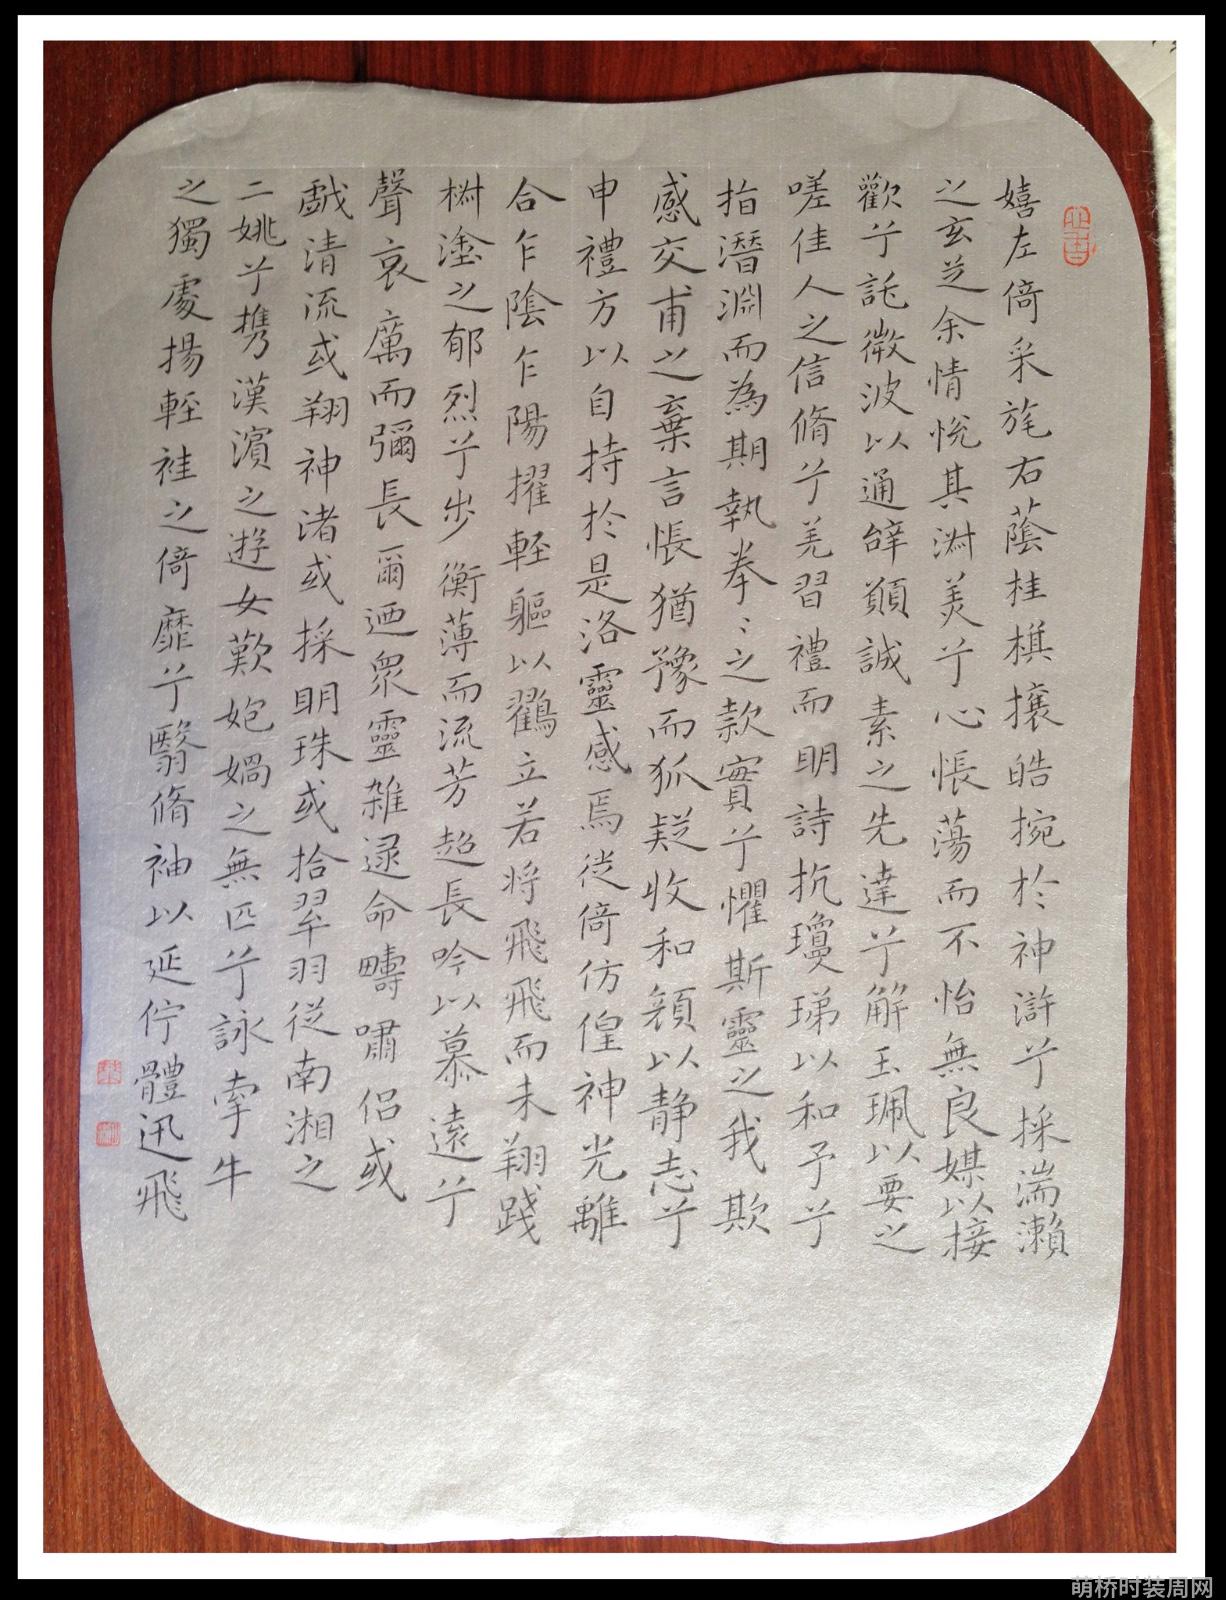 嬉左倚采旄右蔭桂棋攘皓捥於神滸兮採湍瀨
之玄芝余情悅其淑美兮心悵蕩而不怡無良媒以接
歡兮託微波以通辞願誠素之先達兮解玉珮以要之
嗟佳人之信脩兮羌習禮而明詩抗瓊珶以和予兮
指潛淵而為期執拳〻之款實兮懼斯靈之我欺
感交甫之棄言悵猶豫而狐疑收和顏以静志兮
申禮方以自持於是洛靈感焉徙倚仿偟神光離
合乍陰乍陽擢輕軀以鶴立若将飛飛而未翔踐
椒塗之郁烈兮步衡薄而流芳超長吟以慕遠兮
聲哀厲而彌長爾迺衆靈雜逯命疇嘯侶或
戲清流或翔神渚或採明珠或拾翠羽從南湘之
二姚兮携漢濱之遊女歎媩媧之無匹兮詠牽牛
之獨處揚輕袿之倚靡兮翳脩袖以延佇體迅飛
萌桥时装周网